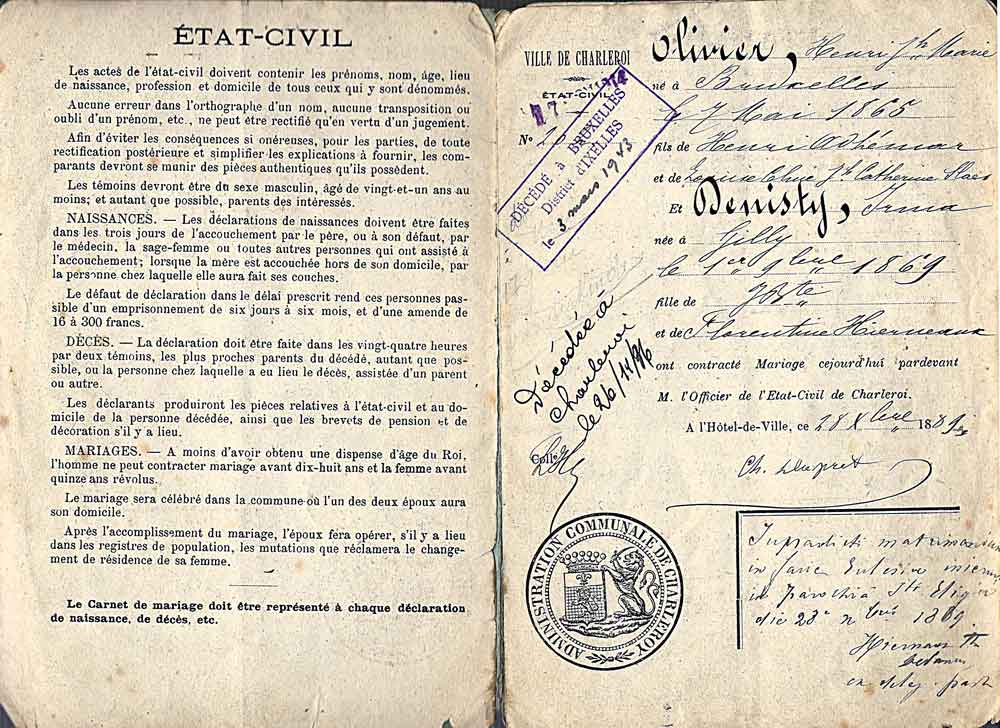 ÉTAT-CIVIL
Les actes de l'état-civil doivent contenir les prénoms, nom, âge, lieu
de naissance, profession et domicile de tous ceux qui y sont dénommés.
Aucune erreur dans l'orthographe d'un nom, aucune transposition ou
oubli d'un prénom, etc., ne peut être rectifié qu'en vertu d'un jugement.
Afin d'éviter les conséquences si onéreuses, pour les parties, de toute
rectification postérieure et simplifier les explications à fournir, les com-
parants devront se munir des pièces authentiques qu'ils possèdent.
Les témoins devront être du sexe masculin, âgé de vingt-et-un ans au
moins; et autant que possible, parents des intéressés.
NAISSANCES. — Les déclarations de naissances doivent être faites
dans les trois jours de l'accouchement par le père, ou à son défaut, par
le médecin, la sage-femme ou toutes autres personnes qui ont assisté à
l'accouchement; lorsque la mère est accouchée hors de son domicile, par
la personne chez laquelle elle aura fait ses couches.
Le défaut de déclaration dans le délai prescrit rend ces personnes pas-
sible d'un emprisonnement de six jours à six mois, et d'une amende de
16 à 300 francs.
DÉCÈS. — La déclaration doit être faite dans les vingt-quatre heures
par deux témoins, les plus proches parents du décédé, autant que pos-
sible, ou la personne chez laquelle a eu lieu le décès, assistée d'un parent
ou autre.
Les déclarants produiront les pièces relatives à l'état-civil et au do-
micile de la personne décédée, ainsi que les brevets de pension et de
décoration s'il y a lieu.
MARIAGES. — A moins d'avoir obtenu une dispense d'âge du Roi,
l'homme ne peut contracter mariage avant dix-huit ans et la femme avant
quinze ans révolus.
Le mariage sera célébré dans la commune où l'un des deux époux aura
son domicile.
Après l'accomplissement du mariage, l'époux fera opérer, s'il y a lieu
dans les registres de population, les mutations que réclamera le change-
ment de résidence de sa femme.
Le Carnet de mariage doit être représenté à chaque déclaration
de naissance, de décès, etc.
VILLE DE CHARLEROI
ÉTAT-CIVIL
No
DÉCÉDÉ à BRUXELLES
District d'IXELLES
le 3 mars 1943
Décédée à
Charleroi
le 26/11/96
Olivier, Henri Jh Marie
né à Bruxelles
le 7 Mai 1865
fils de Henri Adhémar
et de Jh Catherine
Et Denisty, Irma
née à Gilly
le 1er 9bre 1869
fille de
et de Florentine Hierneaux
ont contracté Mariage cejourd'hui pardevant
M. l'Officier de l'Etat-Civil de Charleroi.
A l'Hôtel-de-Ville, ce 28 Xbre 1889
Ch. Dupret
ADMINISTRATION COMMUNALE DE CHARLEROY
in parochia
die 28a 1889
Hiernaux